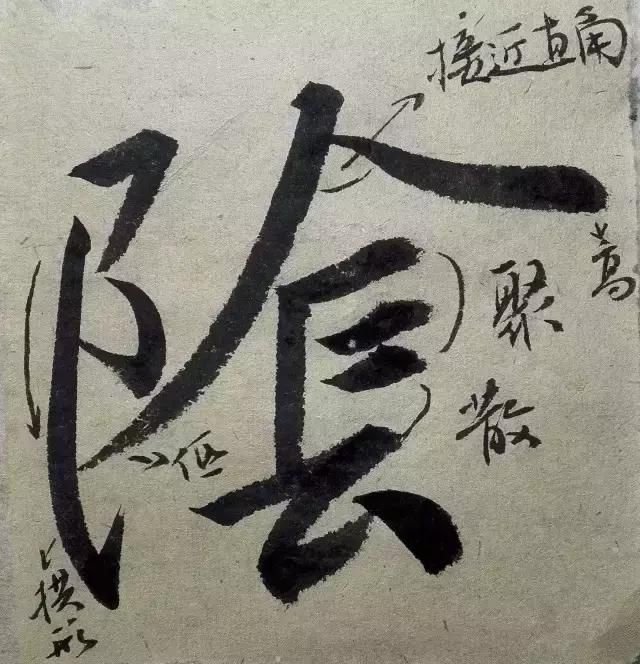 接近直角
陰
高
聚
散
低
拱形